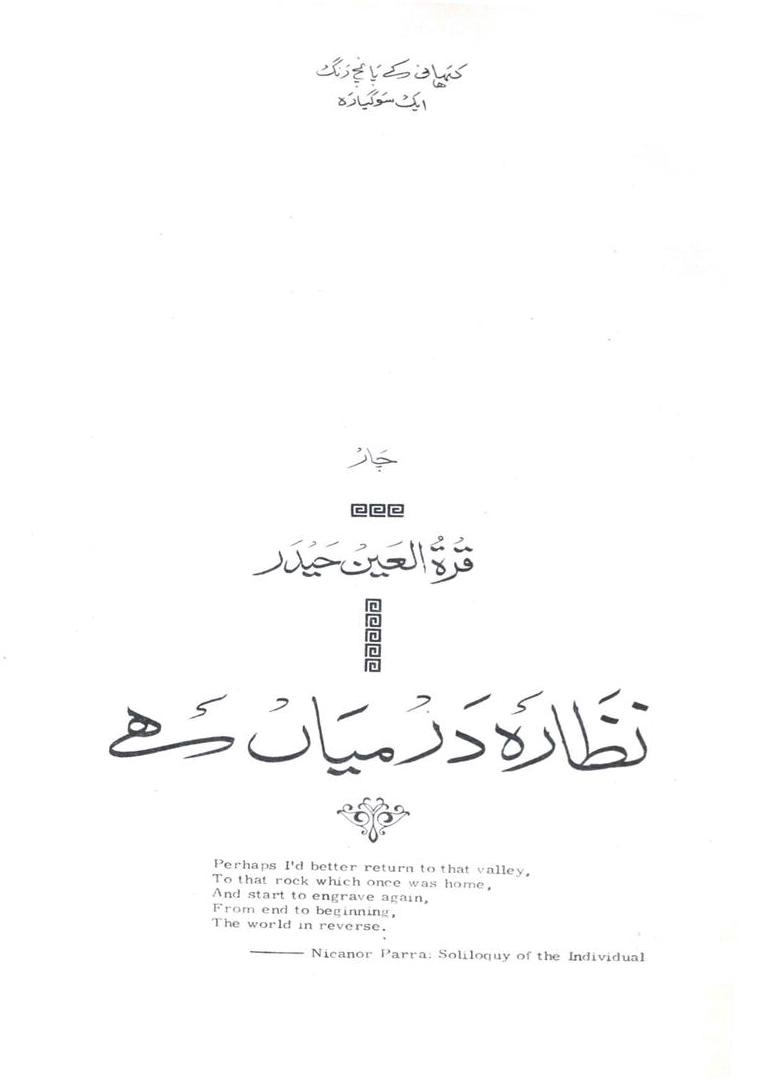 کہانی کے پانچ رنگ
ایک سو گیارہ
چار
قُرۃُ العَین حَیدَر
نظارہ درمیاں ہے
Perhaps I'd better return to that valley,
To that rock which once was home,
And start to engrave again,
From end to beginning,
The world in reverse.
Nicanor Parra: Soliloquy of the Individual